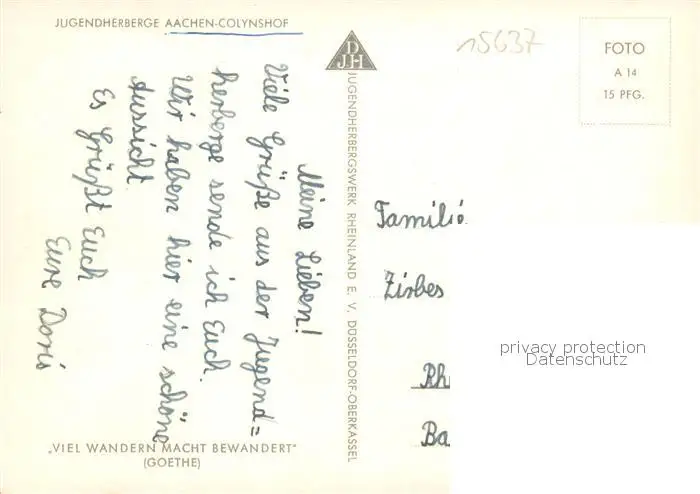 JUGENDHERBERGE AACHEN-COLYNSHOF
Meine Lieben!
Viele Grüße aus der Jugend=
herberge sende ich Euch.
Wir haben hier eine schöne
Aussicht.
Es Grüßt Euch
Eure Doris
„VIEL WANDERN MACHT BEWANDERT"
(GOETHE)
DJH
JUGENDHERBERGSWERK RHEINLAND E. V., DÜSSELDORF-OBERKASSEL
15637
FOTO
A 14
15 PFG.
Familie
Zirbes
Rh
Ba
privacy protection
Datenschutz